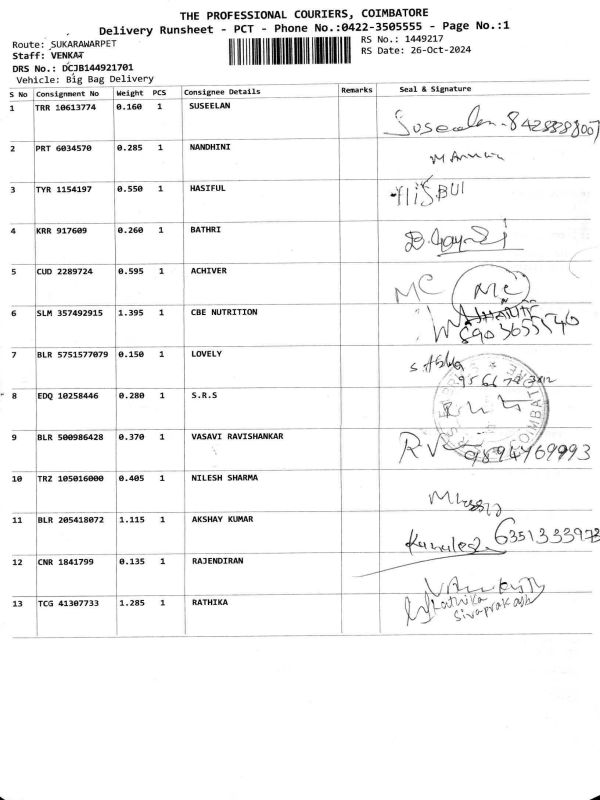 THE PROFESSIONAL COURIERS, COIMBATORE
Delivery Runsheet - PCT - Phone No.:0422-3505555 - Page No.:1
Route: SUKARAWARPET
RS No.: 1449217
Staff: VENKAT
RS Date: 26-Oct-2024
DRS No.: DCJB144921701
Vehicle: Big Bag Delivery
S No Consignment No Weight PCS Consignee Details Remarks Seal & Signature
1 TRR 10613774 0.160 1 SUSEELAN Suseelan 8428888007
2 PRT 6034570 0.285 1 NANDHINI
3 TYR 1154197 0.550 1 HASIFUL
4 KRR 917609 0.260 1 BATHRI
5 CUD 2289724 0.595 1 ACHIVER MC MC
6 SLM 357492915 1.395 1 CBE NUTRITION 8903655540
7 BLR 5751577079 0.150 1 LOVELY
8 EDQ 10258446 0.280 1 S.R.S COIMBATORE
9 BLR 500986428 0.370 1 VASAVI RAVISHANKAR 9894769993
10 TRZ 105016000 0.405 1 NILESH SHARMA
11 BLR 205418072 1.115 1 AKSHAY KUMAR 6351333973
12 CNR 1841799 0.135 1 RAJENDIRAN
13 TCG 41307733 1.285 1 RATHIKA Rathika
Sivaprakash